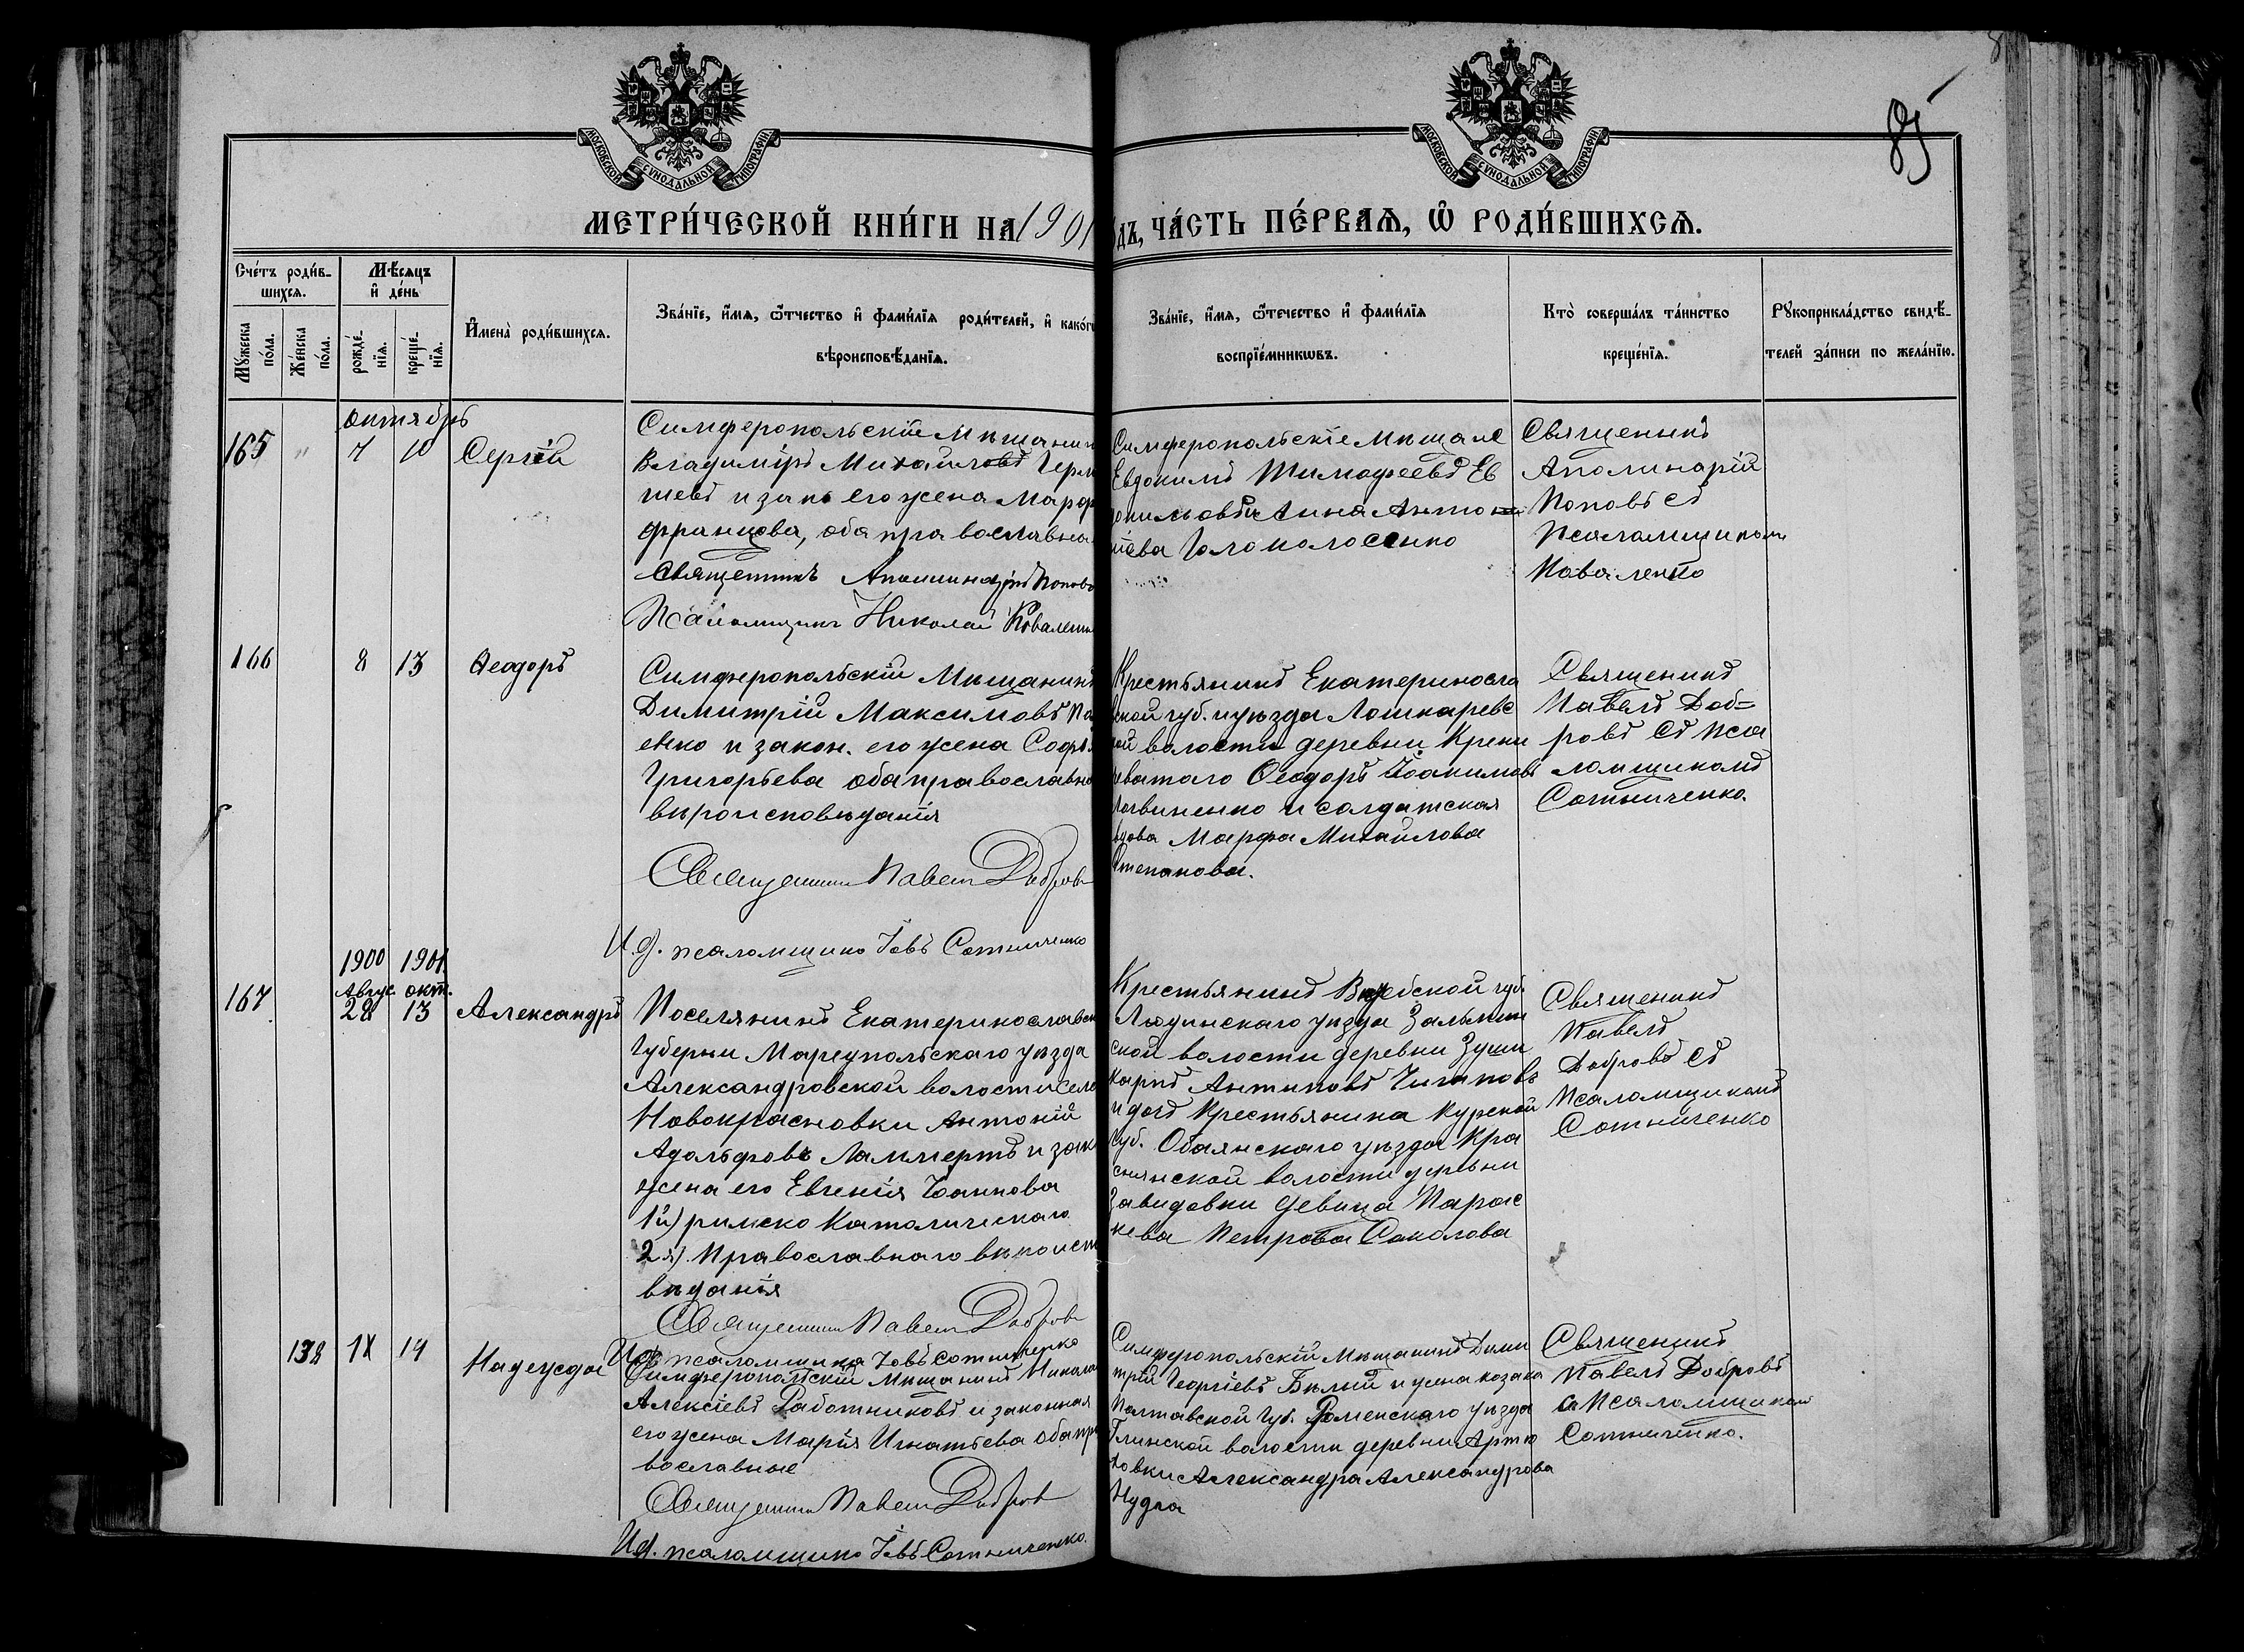 85
МОСКОВСКОЙ СѴНОДАЛЬНОЙ ТИПОГРАФІИ
МОСКОВСКОЙ СѴНОДАЛЬНОЙ ТИПОГРАФІИ
МЕТРИ́ЧЕСКОЙ КНИ́ГИ НА 1901 ДЪ, ЧА́СТЬ ПЕ́РВАѦ, Ѽ РОДИ́ВШИХСѦ.
Сче́тъ роди́в-
шихсѧ.
Мꙋ́жеска по́ла.
Же́нска по́ла.
Мѣ́сѧцъ и҆ де́нь
рожде́-нїѧ.
креще́-нїѧ.
И҆мена̀ роди́вшихсѧ.
Зва́нїе, и҆́мѧ, ѻ҆́тчество и҆ фами́лїѧ роди́телей, и҆ како́гѡ
вѣроисповѣ́данїѧ.
Зва́нїе, и҆́мѧ, ѻ҆́течество и҆ фами́лїѧ
воспрїе́мникѡвъ.
Кто̀ соверша́лъ та́инство
креще́нїѧ.
Рꙋкоприкла́дство свидѣ́-
телей за́писи по жела́нїю.
октябрь
165 " 7 10 Сергій
Симферопольскій Мѣщанин
Владиміръ Михайловъ
шевъ и зак. его жена Марф
францова, оба православна
Священникъ Аполинарій Поповъ
Псаломщикъ Николай Коваленк
Симферопольскіе Мѣщане
Евдокимъ Тимофеевъ Ев
докимовъ и Анна Антоно
Священникъ
Аполинарій
Поповъ съ
Псаломщикомъ
Коваленко
166 8 13 Ѳеодоръ
Симферопольскій Мѣщанинъ
Димитрій Максимовъ Па
енко и закон. его жена Софія
Григорьева оба православна
вѣроисповѣданія
Священникъ Павелъ Добровъ
И. д. псаломщика Іовъ Сотниченко
Крестьянинъ Екатериносла
вской губ. и уѣзда Лошкаревс
кой волости деревни Крени
чеватаго Ѳеодоръ Іоакимовъ
Логвиненко и солдатская
вдова Марфа Михайлова
Степанова.
Священникъ
Павелъ Доб=
ровъ съ пса
ломщикомъ
Сотниченко.
1900 1901
Авгус. окт.
167 28 13 Александръ
Поселянинъ Екатеринославск
Губерни Мариупольскаго уѣзда
Александровской волости села
Новокрасновки Антоній
Адольфовъ Ламмертъ и зак
жена его Евгенія Іоаннова
1й) римско Католическаго
2я). Православнаго вѣроиспо
вѣданія
Священникъ Павелъ Добровъ
И. д. псаломщика Іовъ Сотниченко
Крестьянинъ Витебской губ.
Людинскаго уѣзда
ской волости деревни
Карпъ Антиповъ
и дочь крестьянина Курской
губ. Обаянскаго уѣзда Кра
снянской волости деревни
Завидовки девица Парас
кева Петрова Соколова
Священникъ
Павелъ
Добровъ съ
Псаломщикомъ
Сотниченко
138 IX 14 Надежда
Симферопольскій Мѣщанинъ Никола
Алексіевъ Работниковъ и законная
его жена Марія Игнатьева оба пра
вославные
Священникъ Павелъ Добров
И.д. псаломщика Іовъ Сотниченко.
Симферопольскій Мѣщанинъ Дими
трій Георгіевъ Бѣлый и жена козака
Полтавской Губ. Роменскаго уѣзда
Глинской волости деревни Артю
ховки Александра Александрова
Нудга
Священникъ
Павелъ Добровъ
съ Псаломщиком
Сотниченко.